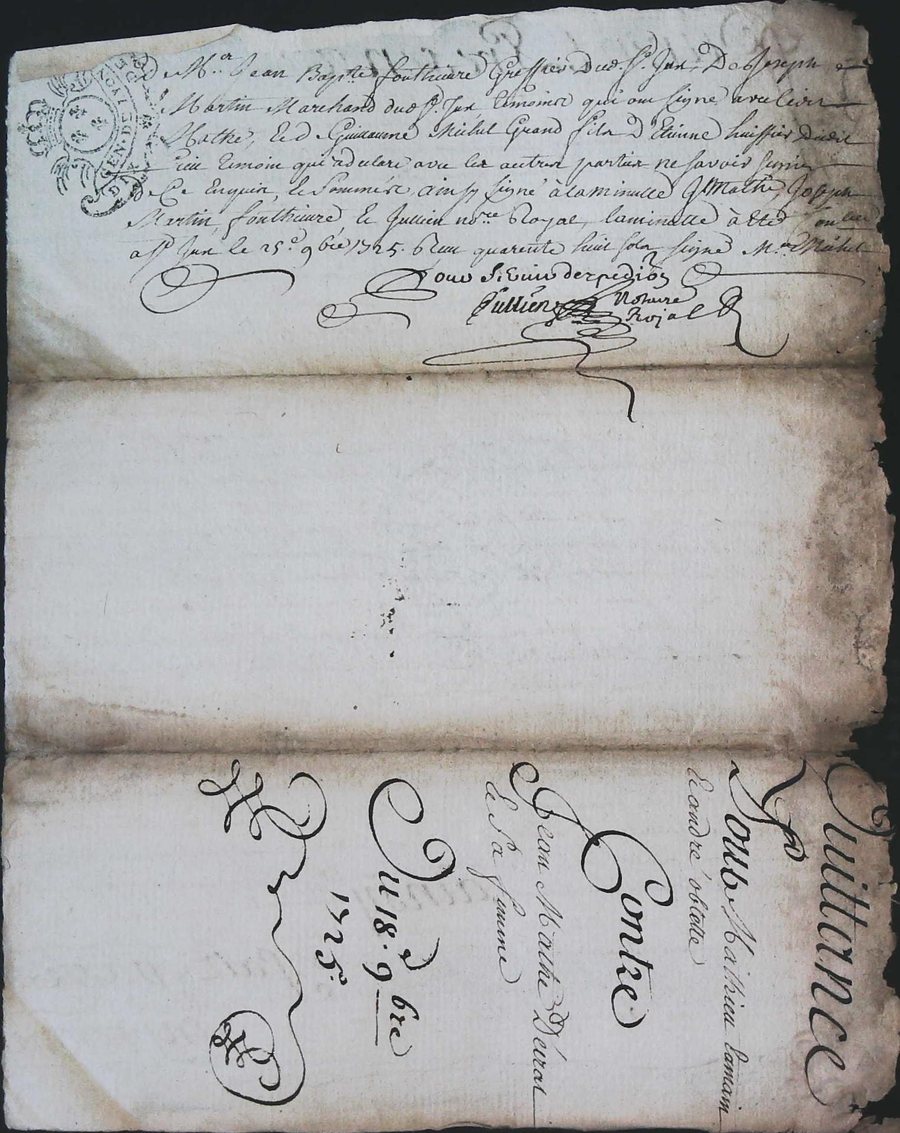 GEN. DE LION
Mr. Jean Baptte fonthieure Greffier dud. St. Jun, De Joseph
Martin Marchand dud. St. Jun temoins qui ont signé avec led.
Mathé, Et de Guillaume Michel Grand fils d'Etienne huissier
temoin qui a declaré avec les autres parties ne savoir signer
De Ce Enquis, Et Sommés ainsy signé à la minutte J Mathé, Joseph
Martin, fonthieure Et Jullien nore. Royal, la minutte à été
a St. Jun le 25e. 9bre 1725. Reçu quarente huit sols signé Michel
Pour Servir d'expedion
Jullien Notaire
Royal
Quittance
Pour Mathieu
Et andré
Contre
Jean Mathé Déirat
Et Sa femme
Du 18. 9bre
1725.